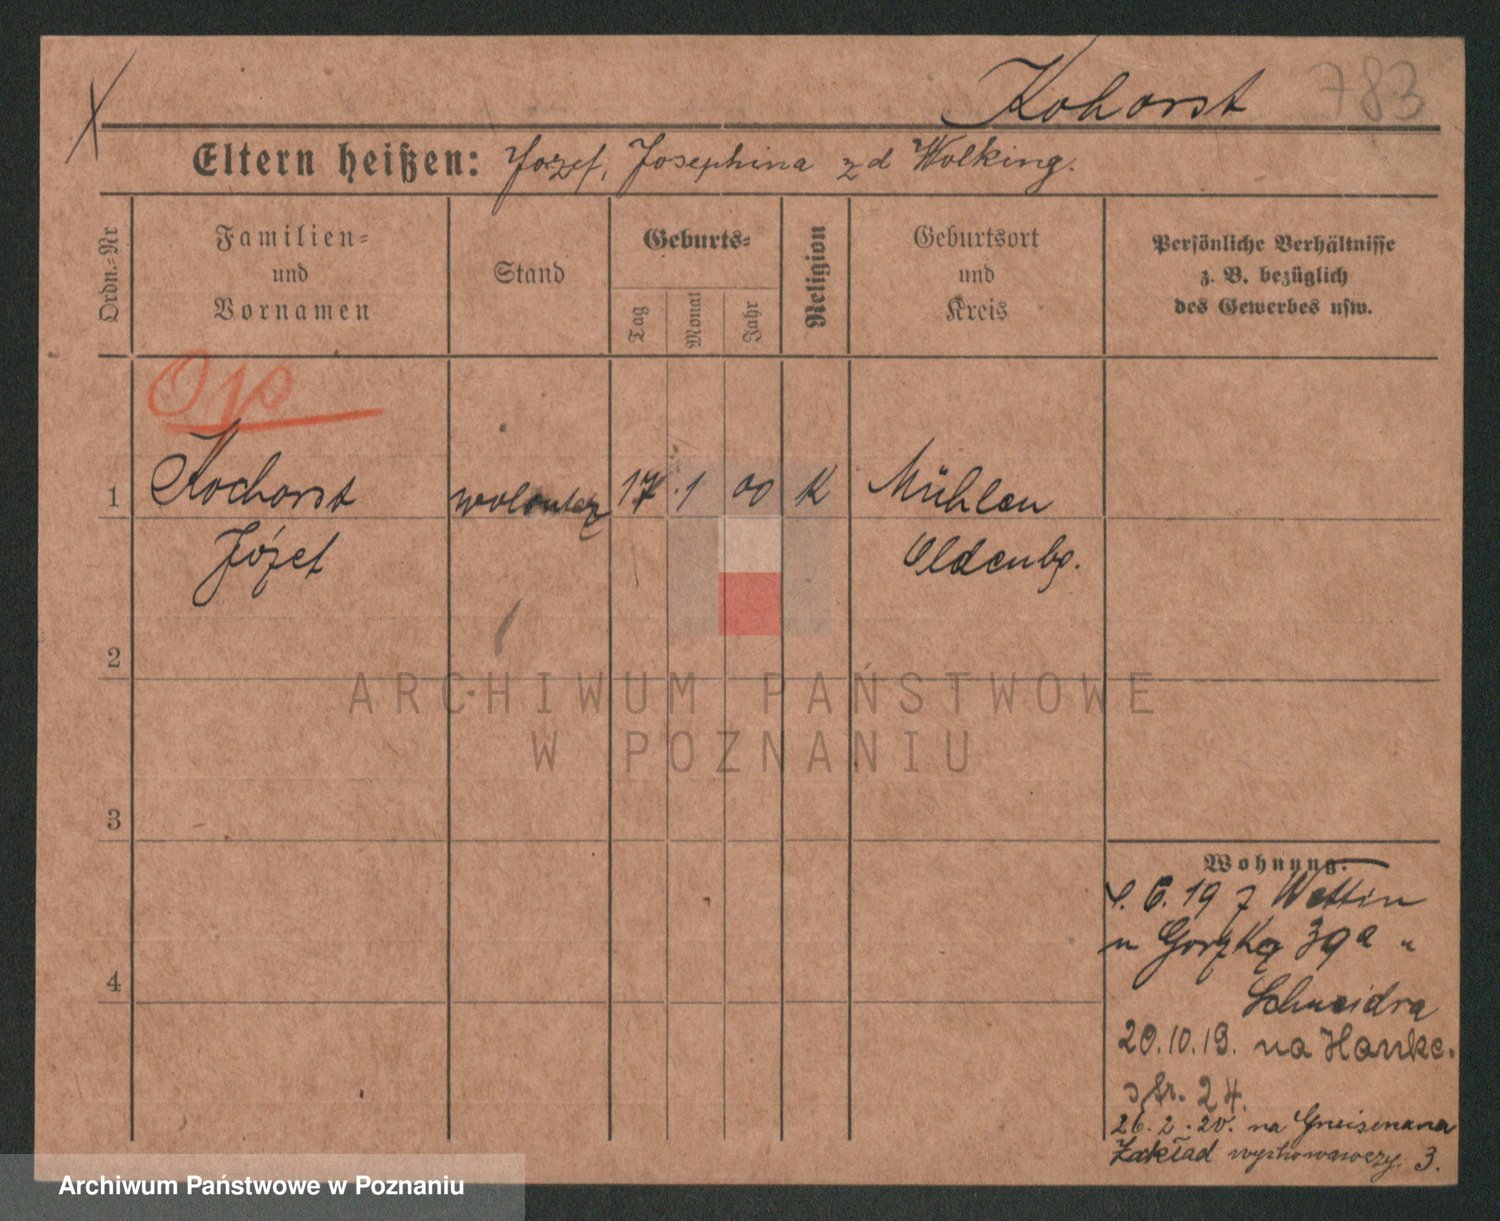 Kohorst 783
Eltern heißen: Jozef, Josephina zd Wolking.
Ordn.-Nr
Familien-
und
Vornamen
Stand
Geburts-
Tag
Monat
Jahr
Religion
Geburtsort
und
Kreis
Persönliche Verhältnisse
z. B. bezüglich
des Gewerbes usw.
1 Kochorst wolontarz 17 . 1 00 K Mühlen
Józef Oldenbg.
2
ARCHIWUM PAŃSTWOWE
W POZNANIU
3
4
Wohnung.
6. 19 z Wettin
39a
Schneidra
20.10.19. na Hanke.
str. 24.
26. 2. 20. na Gneisenana
Zakład wychowawczy 3.
Archiwum Państwowe w Poznaniu